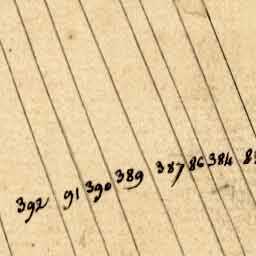 392 91 390 389 387 86 384